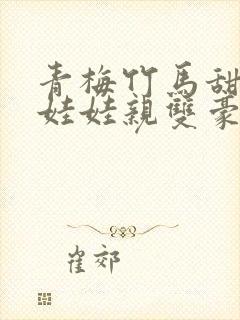 青梅竹馬甜
娃娃親雙豪
崔郊